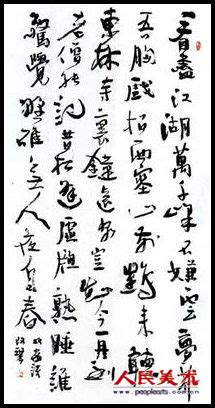 看盡江湖萬千峰不嫌雲夢芥
吾胸戲招西塞山前来聽
東林寺裏鐘遠客豈知今再到
老僧能記昔相逢虛牕熟睡誰
驚覺野碓無人夜自舂
人民美术
www.peoplearts.com